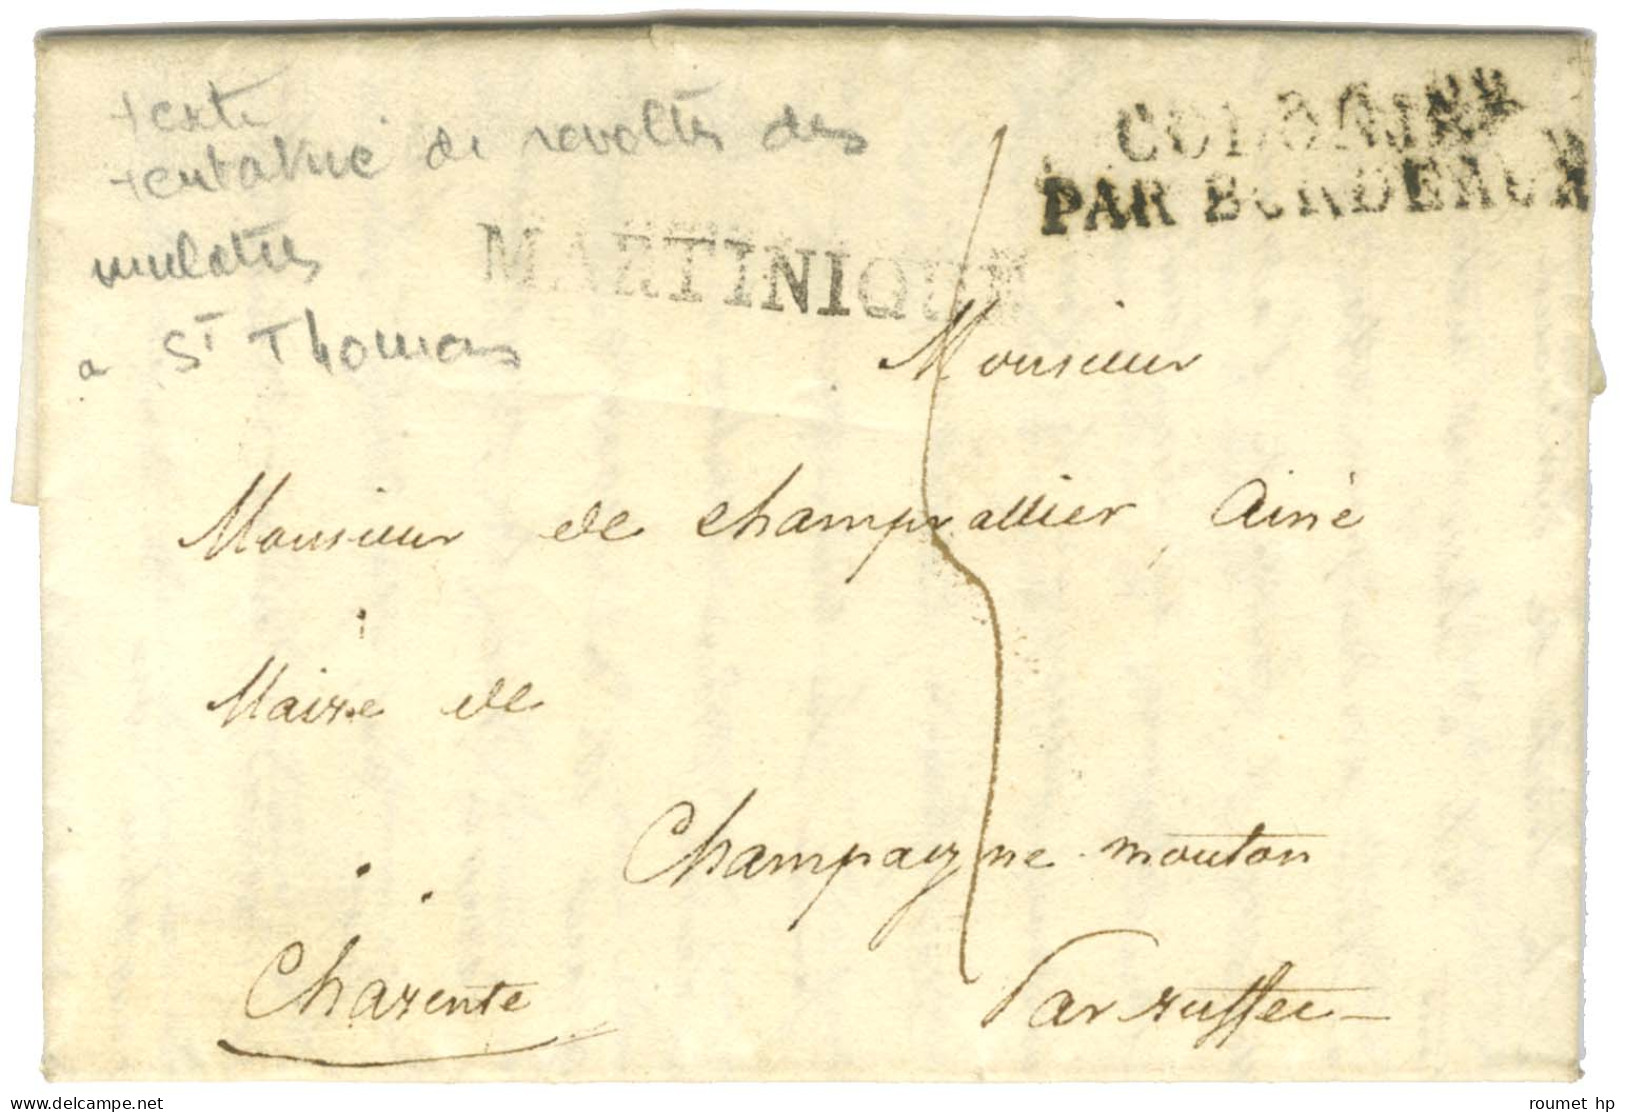 texte
tentative de revoltes des
mulatres
a St Thomas
COLONIES
PAR BORDEAUX
MARTINIQUE
Monsieur
Monsieur de Champvallier, Ainé
Maire de
Champagne mouton
Charente
Par ruffec
delcampe.net
roumet hp